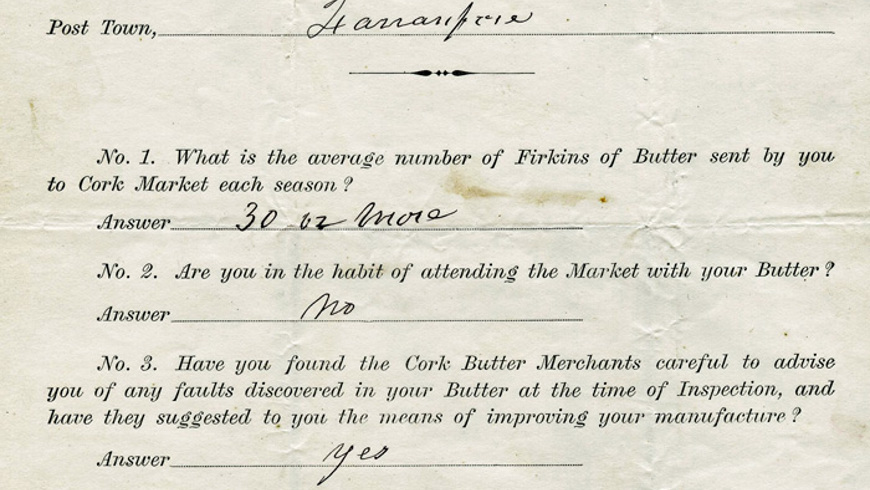 Post Town, Farranfore
No. 1. What is the average number of Firkins of Butter sent by you
to Cork Market each season?
Answer 30 or more
No. 2. Are you in the habit of attending the Market with your Butter?
Answer No
No. 3. Have you found the Cork Butter Merchants careful to advise
you of any faults discovered in your Butter at the time of Inspection, and
have they suggested to you the means of improving your manufacture?
Answer yes